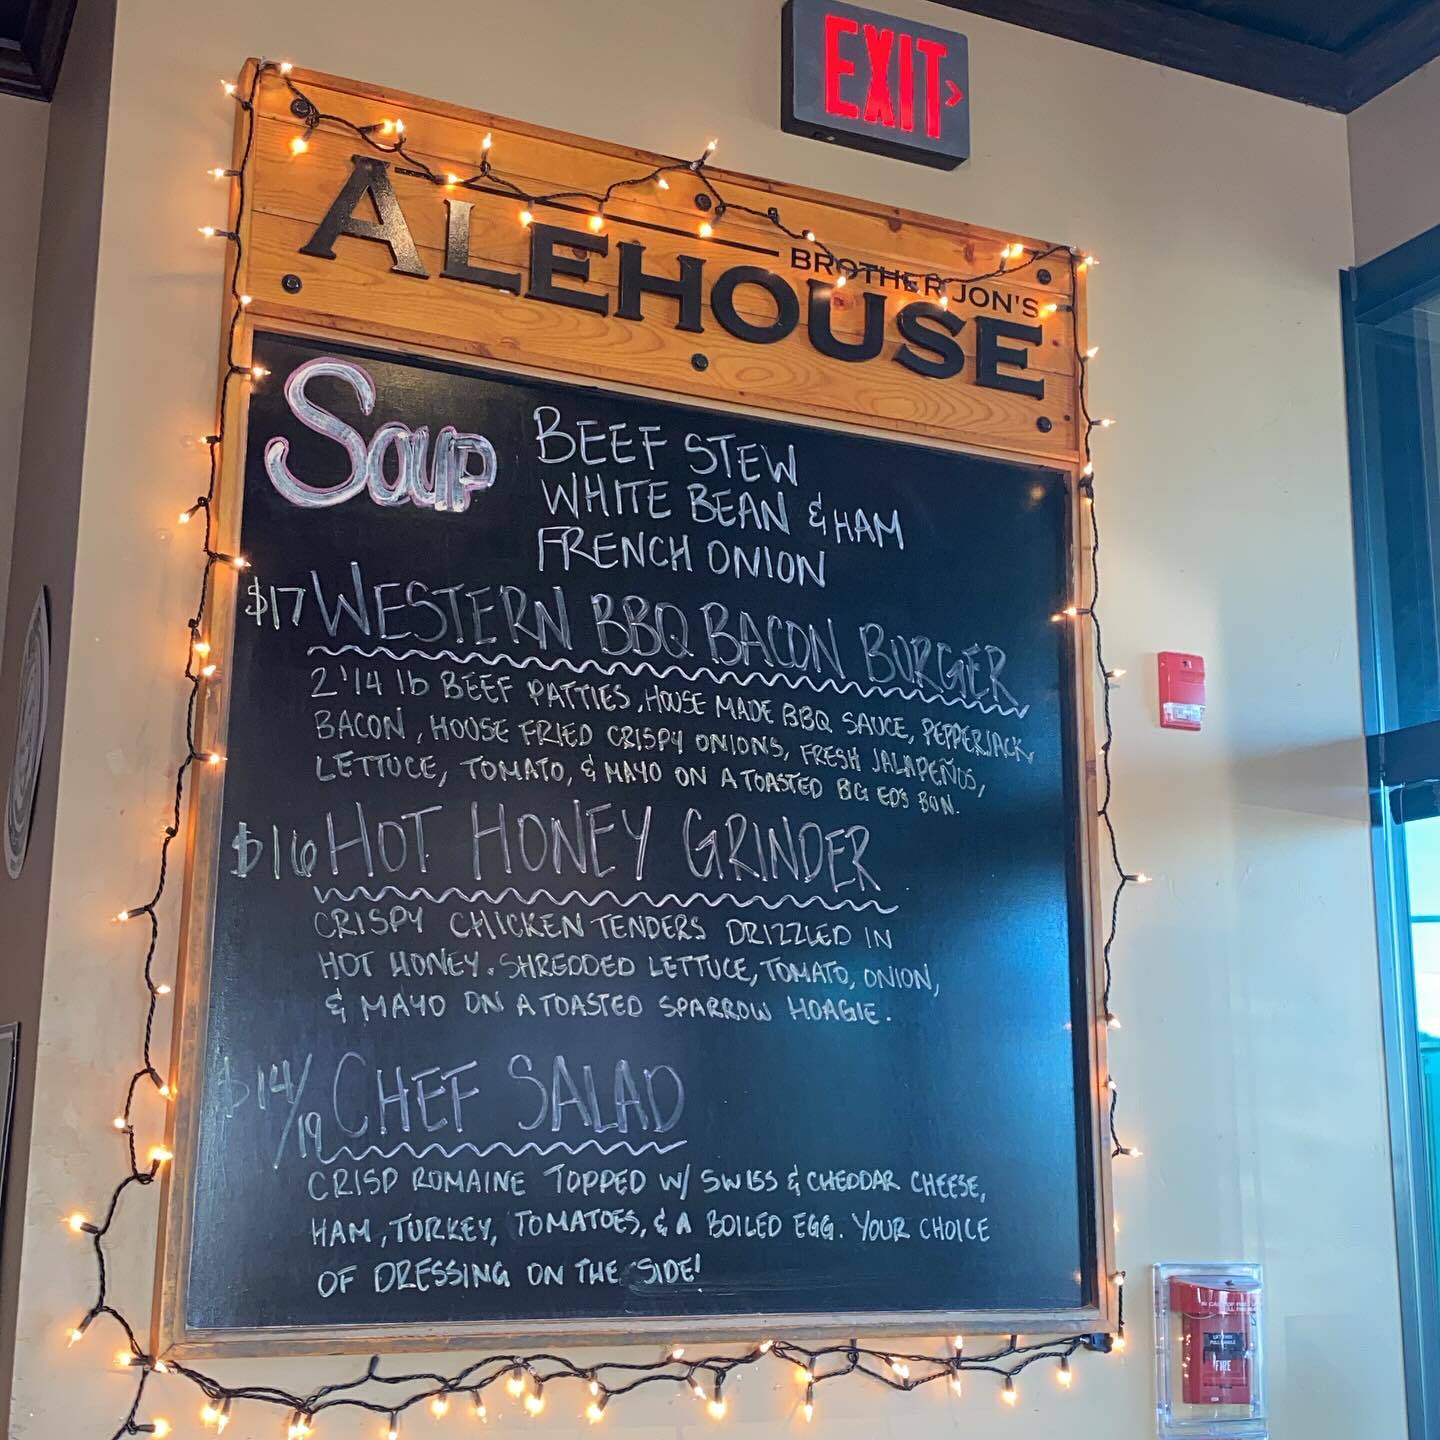 EXIT >
BROTHER JON'S
ALEHOUSE
SOUP
BEEF STEW
WHITE BEAN & HAM
FRENCH ONION
$17 WESTERN BBQ BACON BURGER
2 1/4 lb BEEF PATTIES, HOUSE MADE BBQ SAUCE, PEPPERJACK,
BACON, HOUSE FRIED CRISPY ONIONS, FRESH JALAPEÑOS,
LETTUCE, TOMATO, & MAYO ON A TOASTED BIG ED'S BUN.
$16 HOT HONEY GRINDER
CRISPY CHICKEN TENDERS DRIZZLED IN
HOT HONEY. SHREDDED LETTUCE, TOMATO, ONION,
& MAYO ON A TOASTED SPARROW HOAGIE.
$14/19 CHEF SALAD
CRISP ROMAINE TOPPED W/ SWISS & CHEDDAR CHEESE,
HAM, TURKEY, TOMATOES, & A BOILED EGG. YOUR CHOICE
OF DRESSING ON THE SIDE!
FIRE